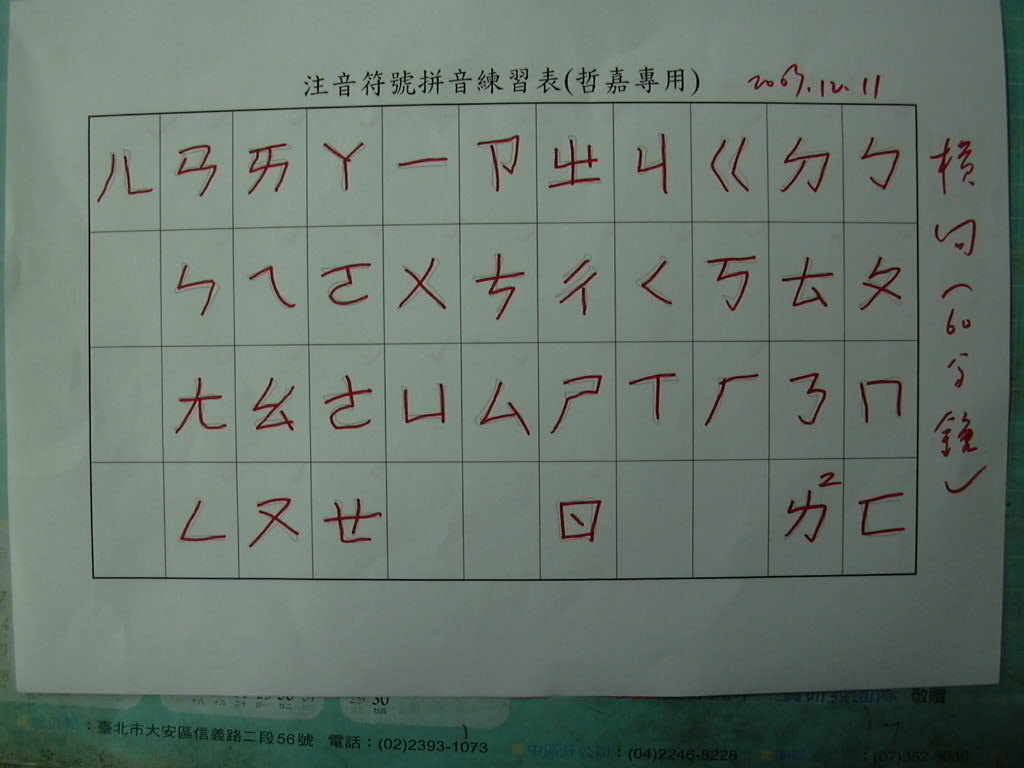 注音符號拼音練習表(哲嘉專用)
ㄦ ㄢ ㄞ ㄚ ㄧ ㄗ ㄓ ㄐ ㄍ ㄉ ㄅ
ㄣ ㄟ ㄛ ㄨ ㄘ ㄔ ㄑ ㄎ ㄊ ㄆ
ㄤ ㄠ ㄜ ㄩ ㄙ ㄕ ㄒ ㄏ ㄋ ㄇ
ㄥ ㄡ ㄝ ㄖ ㄌ2 ㄈ
橫向(60分鐘)
30
：臺北市大安區信義路二段56號 電話：(02)2393-1073
中區分公司：(04)2246-8228
敬贈